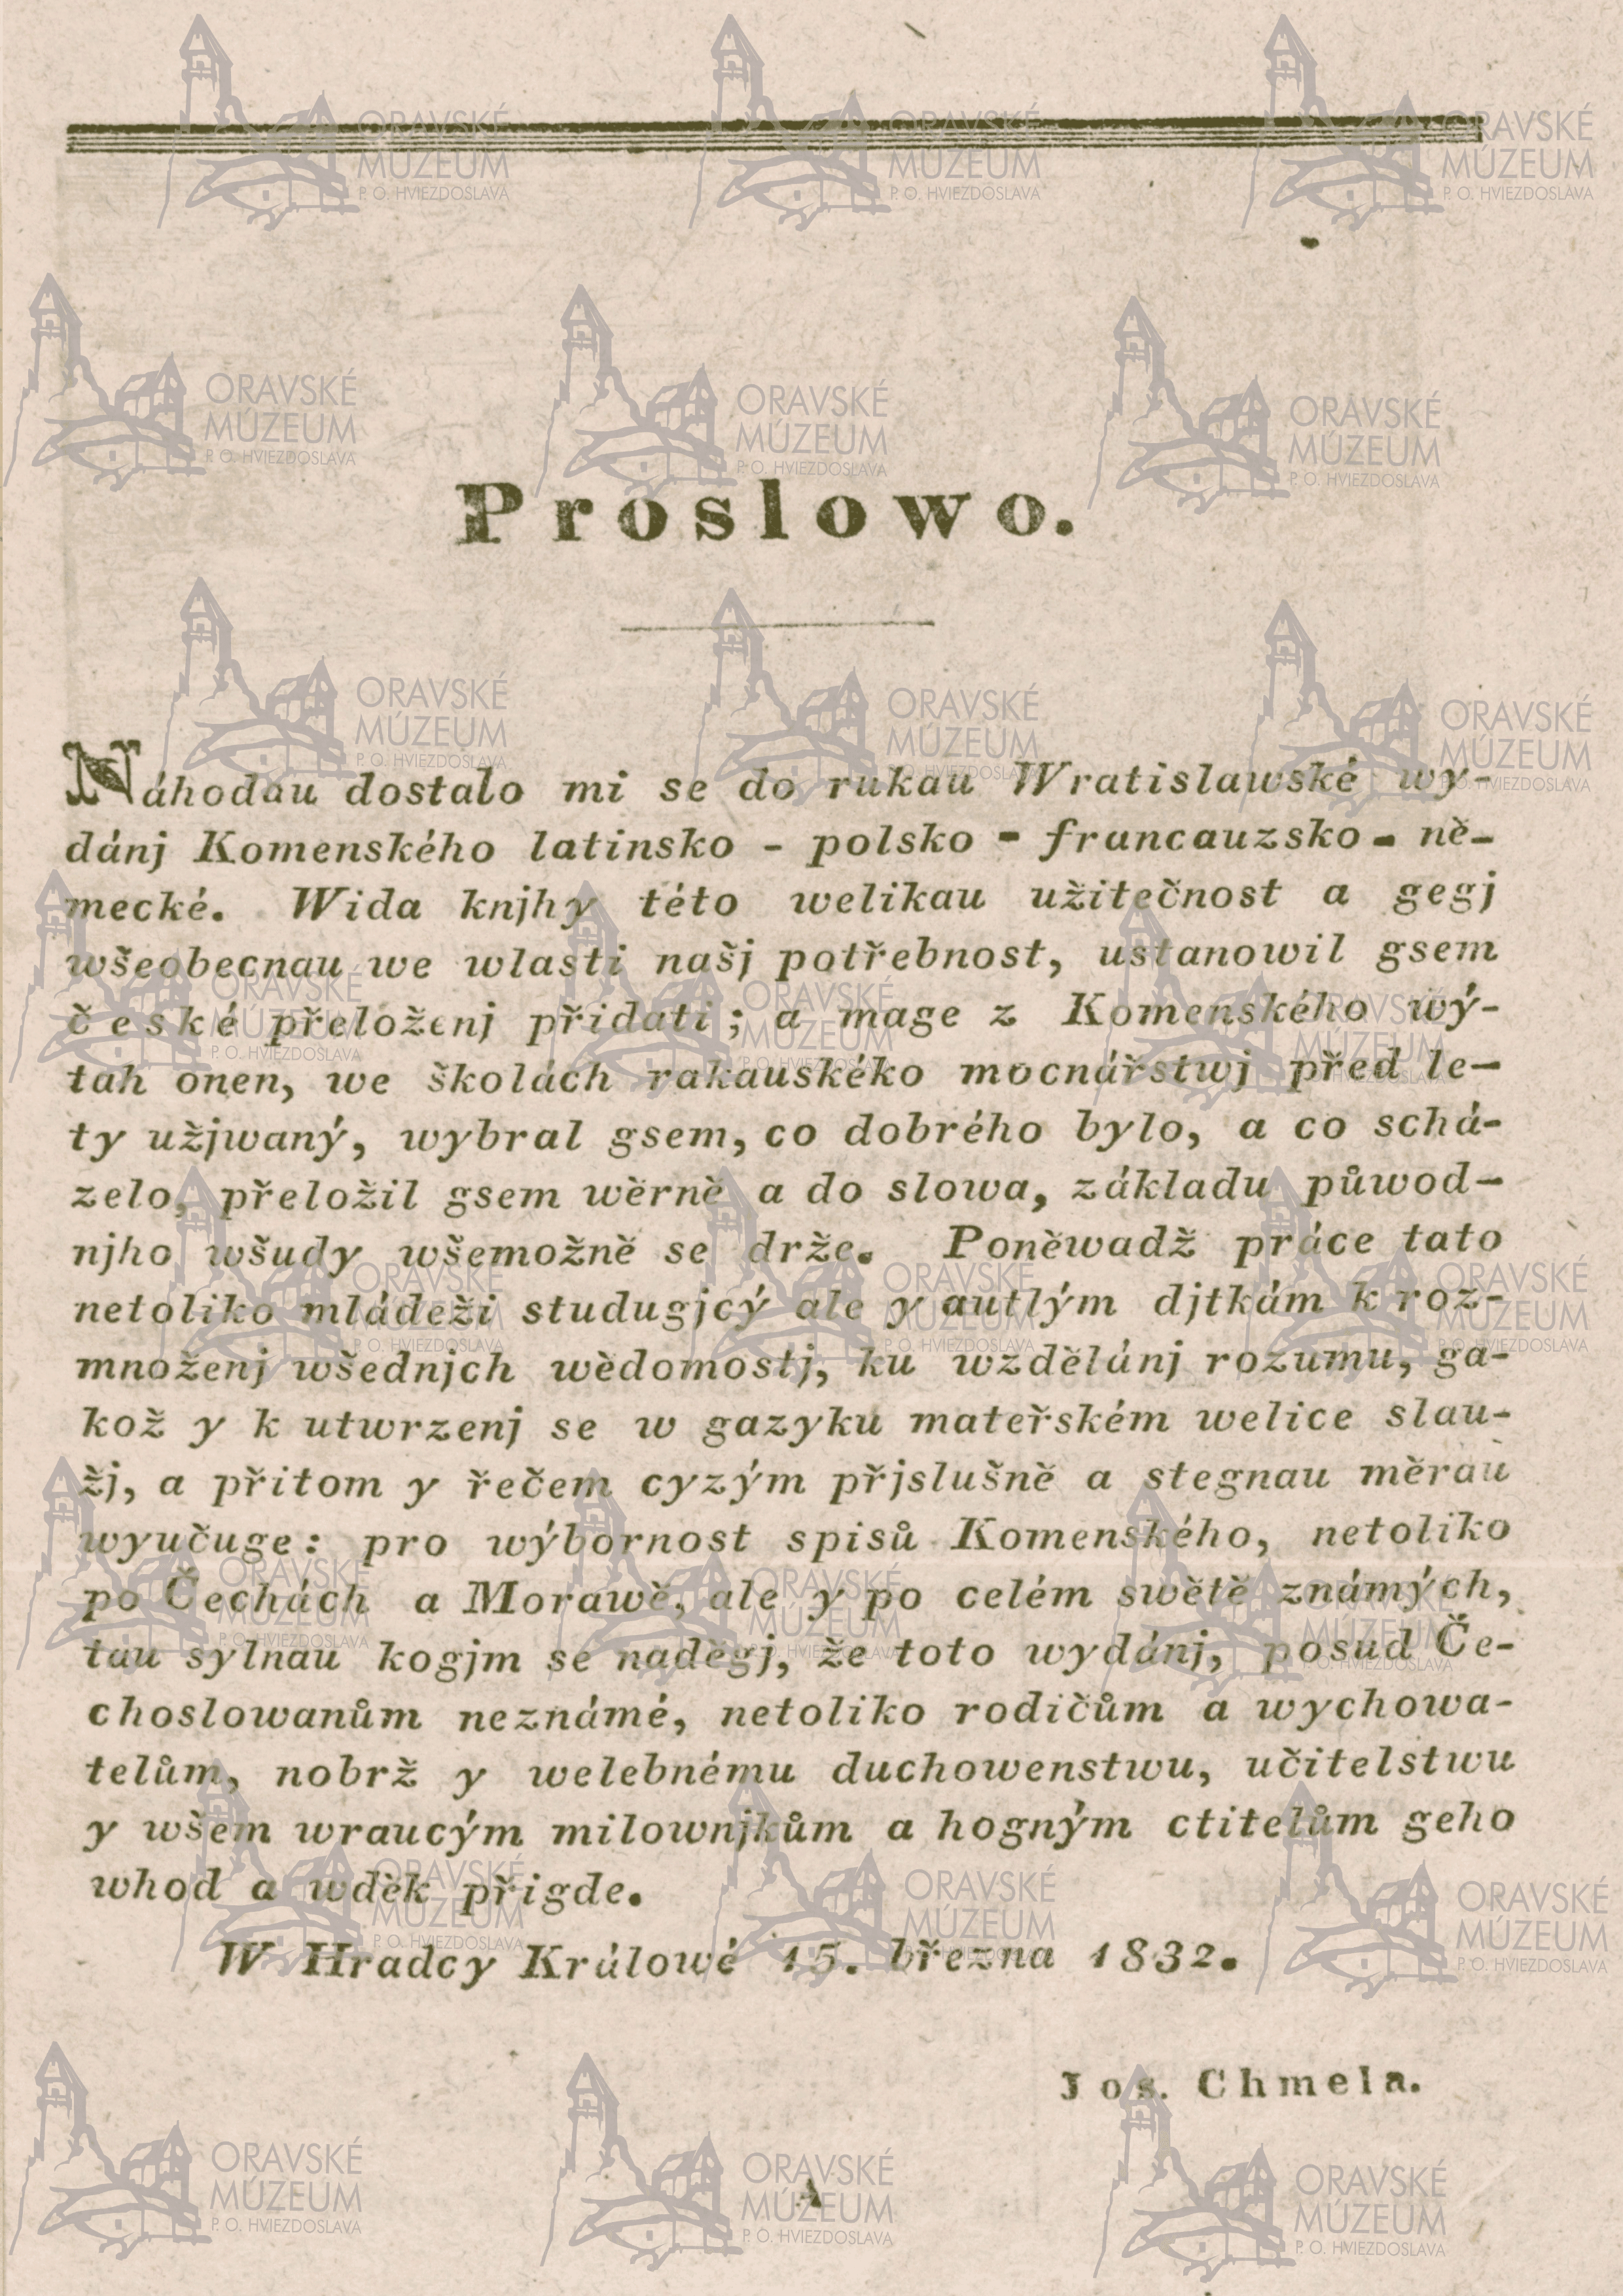 Proslowo.
Náhodau dostalo mi se do rukau Wratislawské wy-
dánj Komenského latinsko - polsko - francauzsko - ně-
mecké. Wida knjhy této welikau užitečnost a gegj
wšeobecnau we wlasti našj potřebnost, ustanowil gsem
české přeloženj přidati; a mage z Komenského wý-
tah onen, we školách rakauskéko mocnářstwj před le-
ty užjwaný, wybral gsem, co dobrého bylo, a co schá-
zelo, přeložil gsem wěrně a do slowa, základu půwod-
njho wšudy wšemožně se drže. Poněwadž práce tato
netoliko mládeži studugjcý ale y autlým djtkám k roz-
množenj wšednjch wědomostj, ku wzdělánj rozumu, ga-
kož y k utwrzenj se w gazyku mateřském welice slau-
žj, a přitom y řečem cyzým přjslušně a stegnau měrau
wyučuge: pro wýbornost spisů Komenského, netoliko
po Čechách a Morawě, ale y po celém swětě známých,
tau sylnau kogjm se nadĕgj, že toto wydánj, posud Če-
choslowanům neznámé, netoliko rodičům a wychowa-
telům, nobrž y welebnému duchowenstwu, učitelstwu
y wšem wraucým milownjkům a hogným ctitelům geho
whod a wděk přigde.
W Hradcy Králowé 15. března 1832.
Jos. Chmela.
A
ORAVSKÉ
MÚZEUM
P. O. HVIEZDOSLAVA